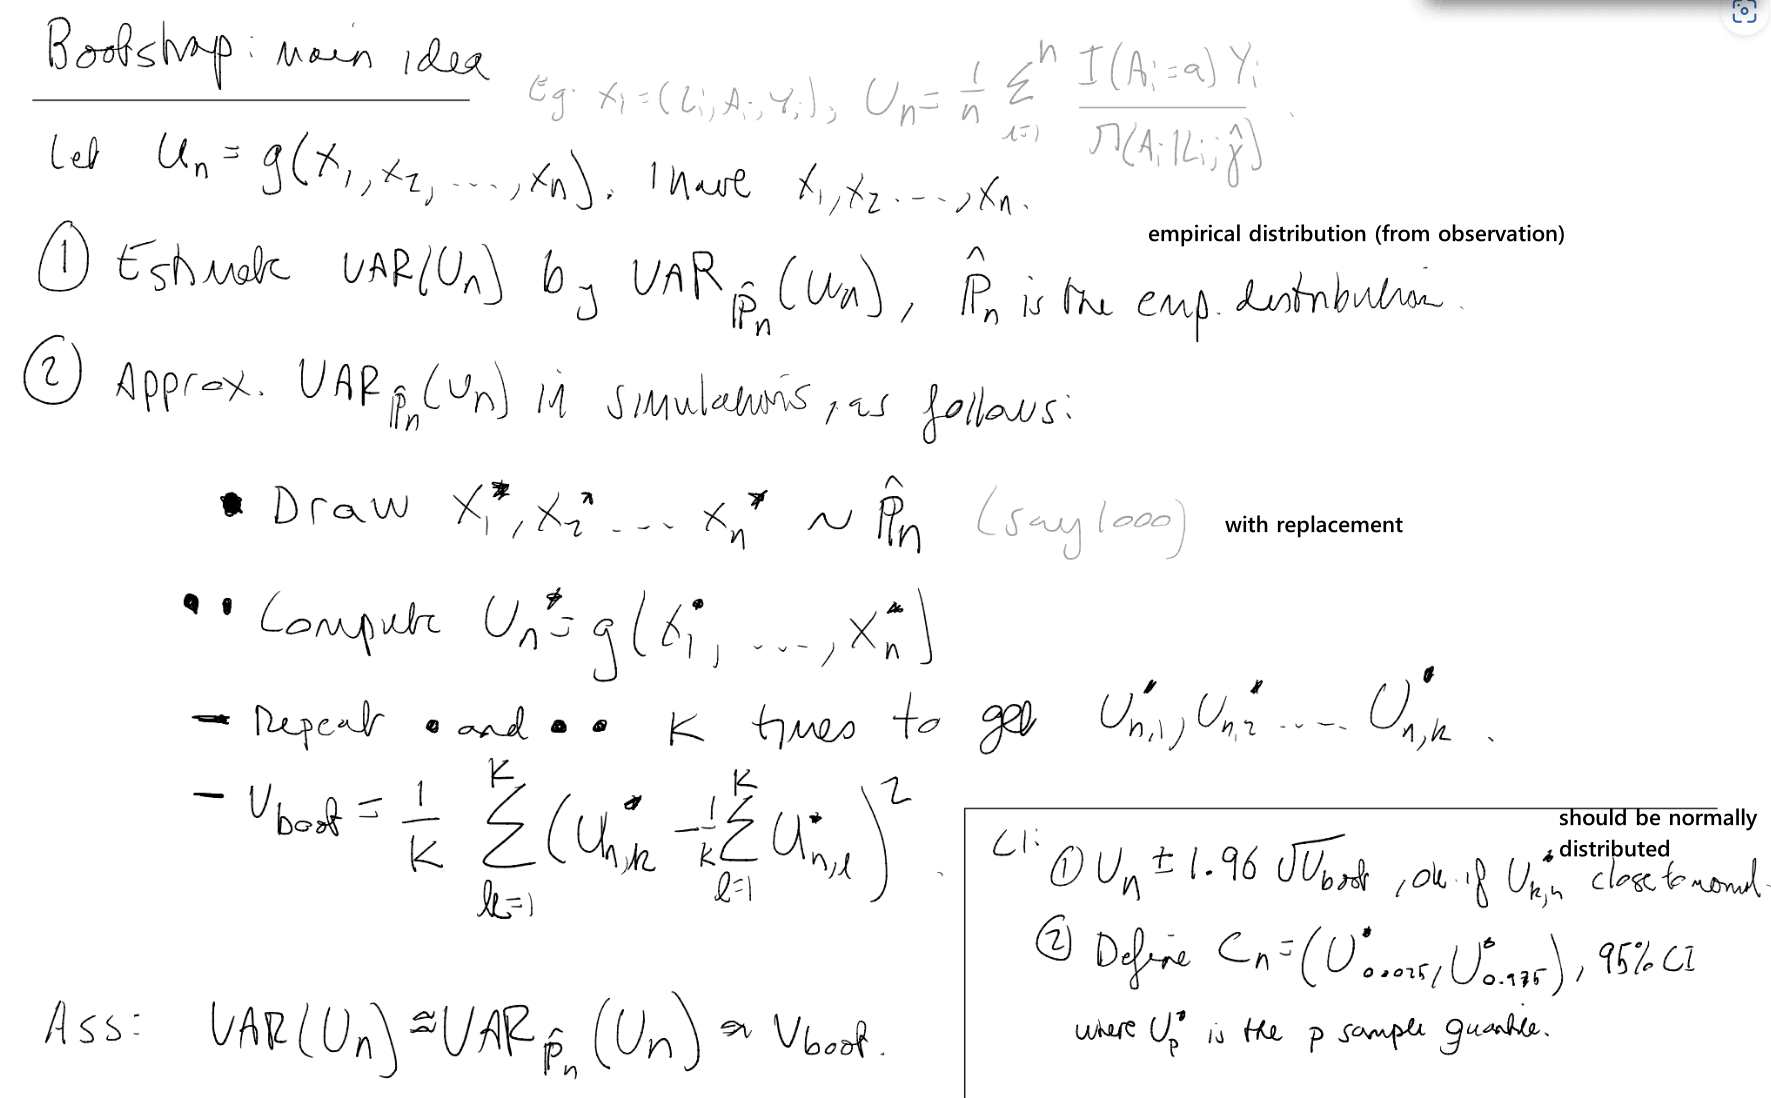 Bootstrap: main idea
Eg. X_i = (L_i, A_i, Y_i), U_n = 1/n Σ_{i=1}^n I(A_i = a) Y_i / π(A_i | L_i; γ̂)
Let U_n = g(X_1, X_2, ..., X_n). I have X_1, X_2 ..., X_n.
empirical distribution (from observation)
① Estimate VAR(U_n) by VAR_{P̂_n}(U_n), P̂_n is the emp. distribution.
② Approx. VAR_{P̂_n}(U_n) in simulations, as follows:
• Draw X_1^*, X_2^* ... X_n^* ~ P̂_n (say 1000) with replacement
•• Compute U_n^* = g(X_1^*, ..., X_n^*)
– Repeat • and •• K times to get U_{n,1}^*, U_{n,2}^* .... U_{n,k}^*.
– V_boot = 1/K Σ_{k=1}^K (U_{n,k}^* - 1/K Σ_{l=1}^K U_{n,l}^*)^2.
should be normally
distributed
CI: ① U_n ± 1.96 √V_boot, ok if U_{k,n}^* close to normal.
② Define C_n = (U_{0.0025}^*, U_{0.975}^*), 95% CI
where U_p^* is the p sample quantile.
Ass: VAR(U_n) ≈ VAR_{P̂_n}(U_n) ≈ V_boot.